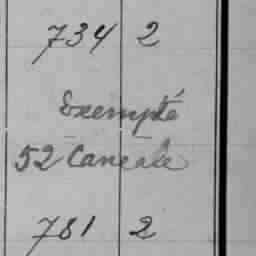 734 2
Exempté
52 Cancale
781 2